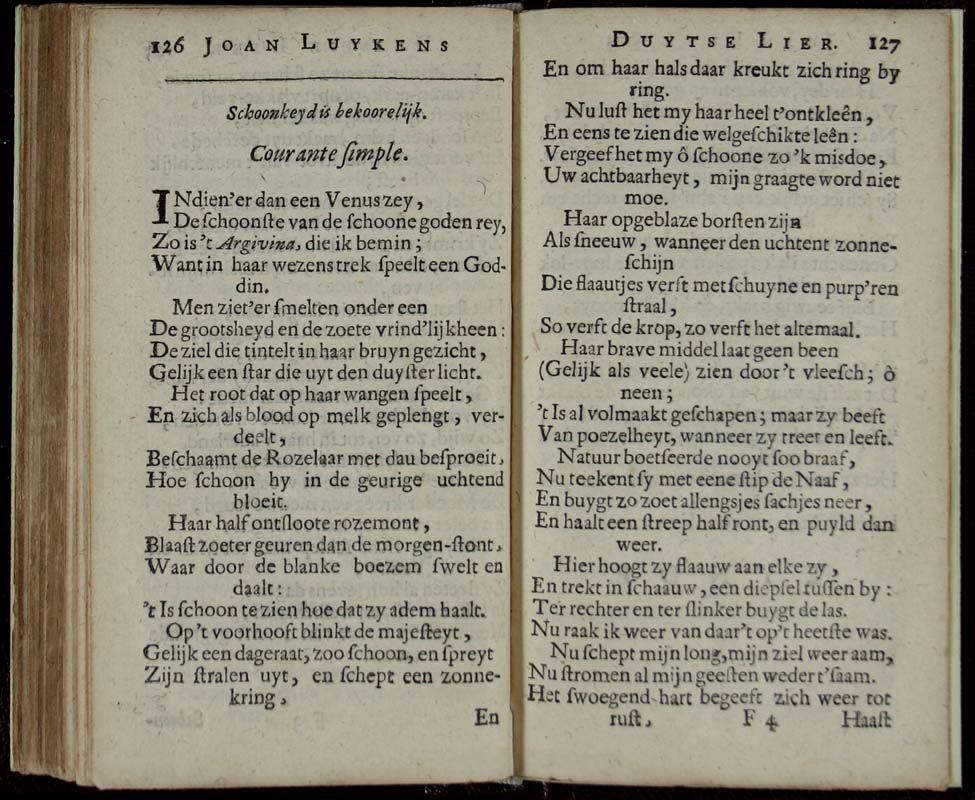 126 JOAN LUYKENS
Schoonheyd is bekoorelijk.
Courante ſimple.
INdien'er dan een Venus zey,
De ſchoonſte van de ſchoone goden rey,
Zo is 't Argivina, die ik bemin;
Want in haar wezens trek ſpeelt een God-
din.
Men ziet'er ſmelten onder een
De grootsheyd en de zoete vrind'lijkheen:
De ziel die tintelt in haar bruyn gezicht,
Gelijk een ſtar die uyt den duyſter licht.
Het root dat op haar wangen ſpeelt,
En zich als bloed op melk geplengt, ver-
deelt,
Beſchaamt de Rozelaar met dau beſproeit,
Hoe ſchoon hy in de geurige uchtend
bloeit.
Haar half ontſloote rozemont,
Blaaſt zoeter geuren dan de morgen-ſtont,
Waar door de blanke boezem ſwelt en
daalt:
't Is ſchoon te zien hoe dat zy adem haalt.
Op 't voorhooft blinkt de majeſteyt,
Gelijk een dageraat, zoo ſchoon, en ſpreyt
Zijn ſtralen uyt, en ſchept een zonne-
kring,
En
DUYTSE LIER. 127
En om haar hals daar kreukt zich ring by
ring.
Nu luſt het my haar heel t'ontkleên,
En eens te zien die welgeſchikte leên:
Vergeef het my ô ſchoone zo 'k misdoe,
Uw achtbaarheyt, mijn graagte word niet
moe.
Haar opgeblaze borſten zijn
Als ſneeuw, wanneer den uchtent zonne-
ſchijn
Die flaautjes verft met ſchuyne en purp'ren
ſtraal,
So verft de krop, zo verft het altemaal.
Haar brave middel laat geen been
(Gelijk als veele) zien door 't vleeſch; ô
neen;
't Is al volmaakt geſchapen; maar zy beeft
Van poezelheyt, wanneer zy treet en leeft.
Natuur boetſeerde nooyt ſoo braaf,
Nu teekent ſy met eene ſtip de Naaf,
En buygt zo zoet allengsjes ſachjes neer,
En haalt een ſtreep half ront, en puyld dan
weer.
Hier hoogt zy flaauw aan elke zy,
En trekt in ſchaauw, een diepſel tuſſen by:
Ter rechter en ter ſlinker buygt de las.
Nu raak ik weer van daar 't op 't heetſte was.
Nu ſchept mijn long, mijn ziel weer aam,
Nu ſtromen al mijn geeſten weder t'ſaam.
Het ſwoegend hart begeeft zich weer tot
ruſt, F 4 Haaſt